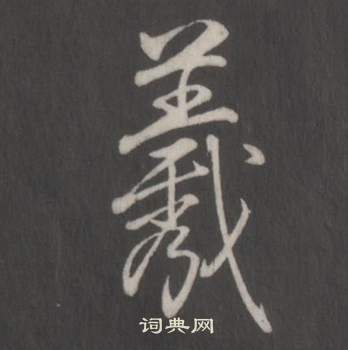 羲
词典网